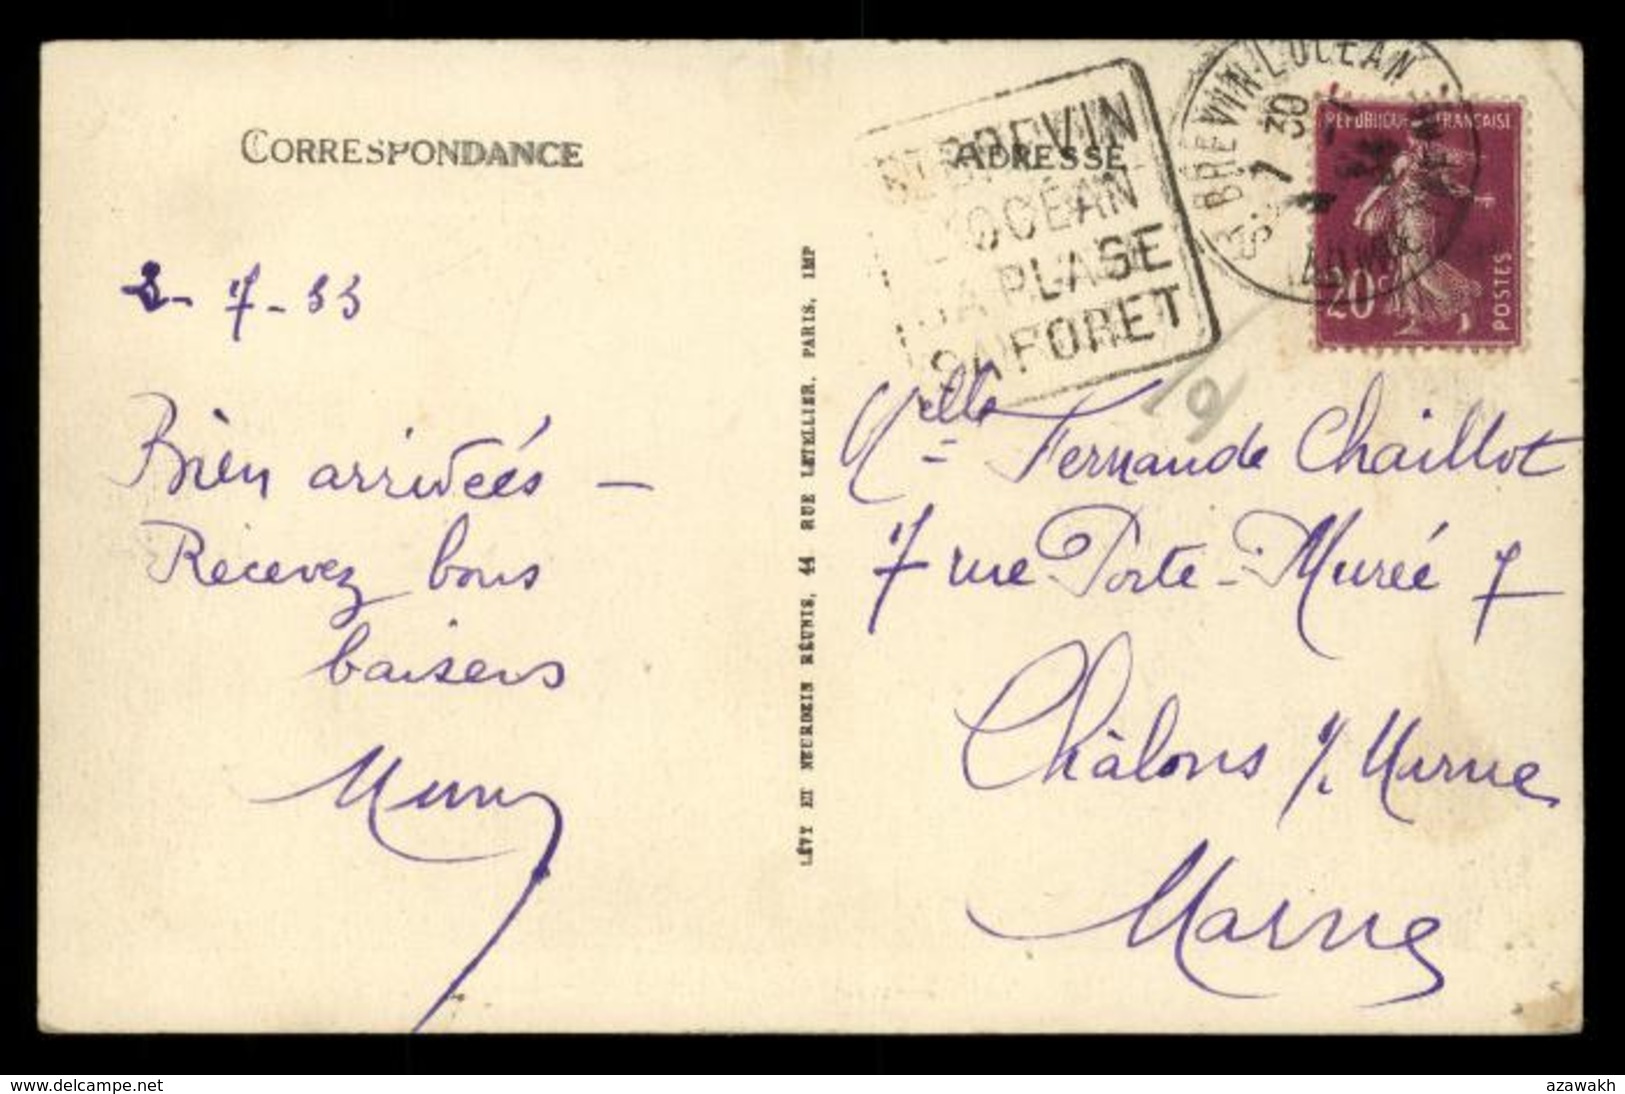 CORRESPONDANCE
2-7-33
Bien arrivéés –
Recevez bons
baisers
LÉVY ET NEURDEIN RÉUNIS, 44 RUE LETELLIER, PARIS, IMP
ADRESSE
ST BREVIN
L'OCÉAN
SA PLAGE
SA FORET
ST BREVIN-L'OCEAN
7 30
RÉPUBLIQUE FRANÇAISE
20c
POSTES
Melle Fernande Chaillot
7 rue Porte-Murée 7
Châlons s/ Marne
Marne
www.delcampe.net
azawakh